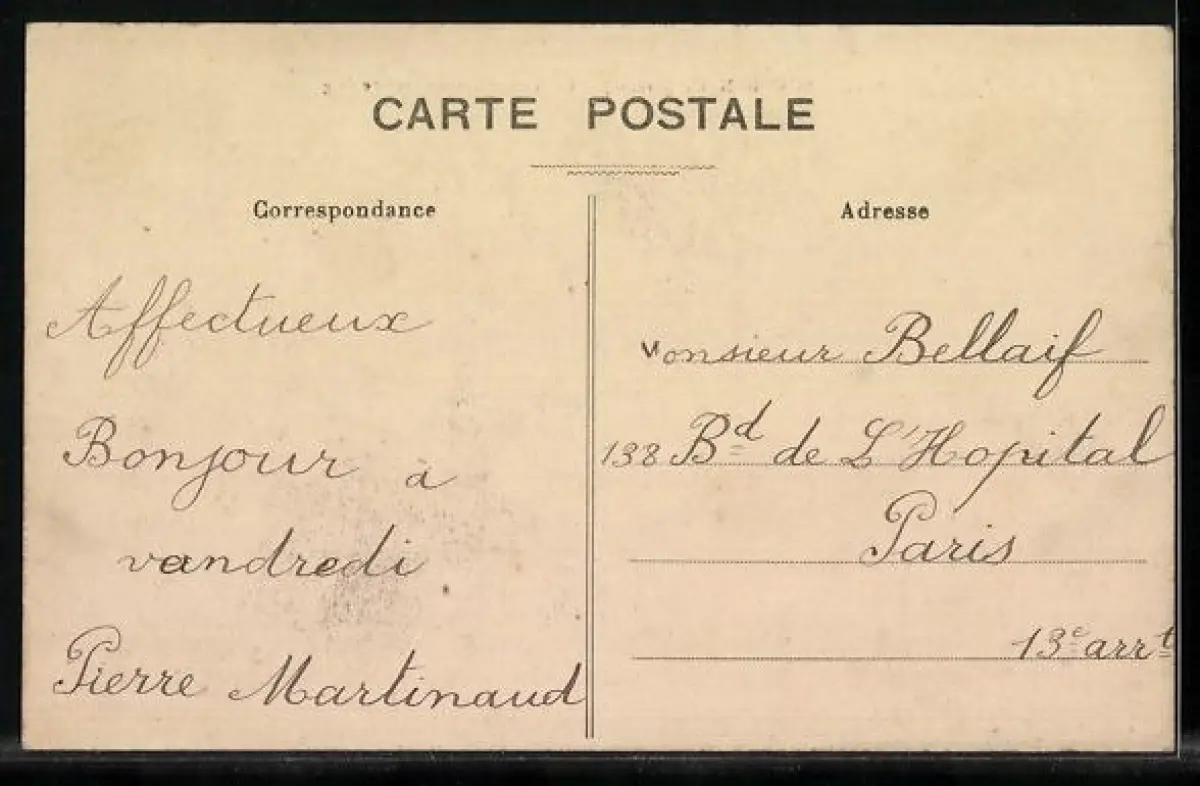 CARTE POSTALE
Correspondance
Affectueux
Bonjour à
vandredi
Pierre Martinaud
Adresse
Monsieur Bellaif
138 Bd de L'Hopital
Paris
13e arrt